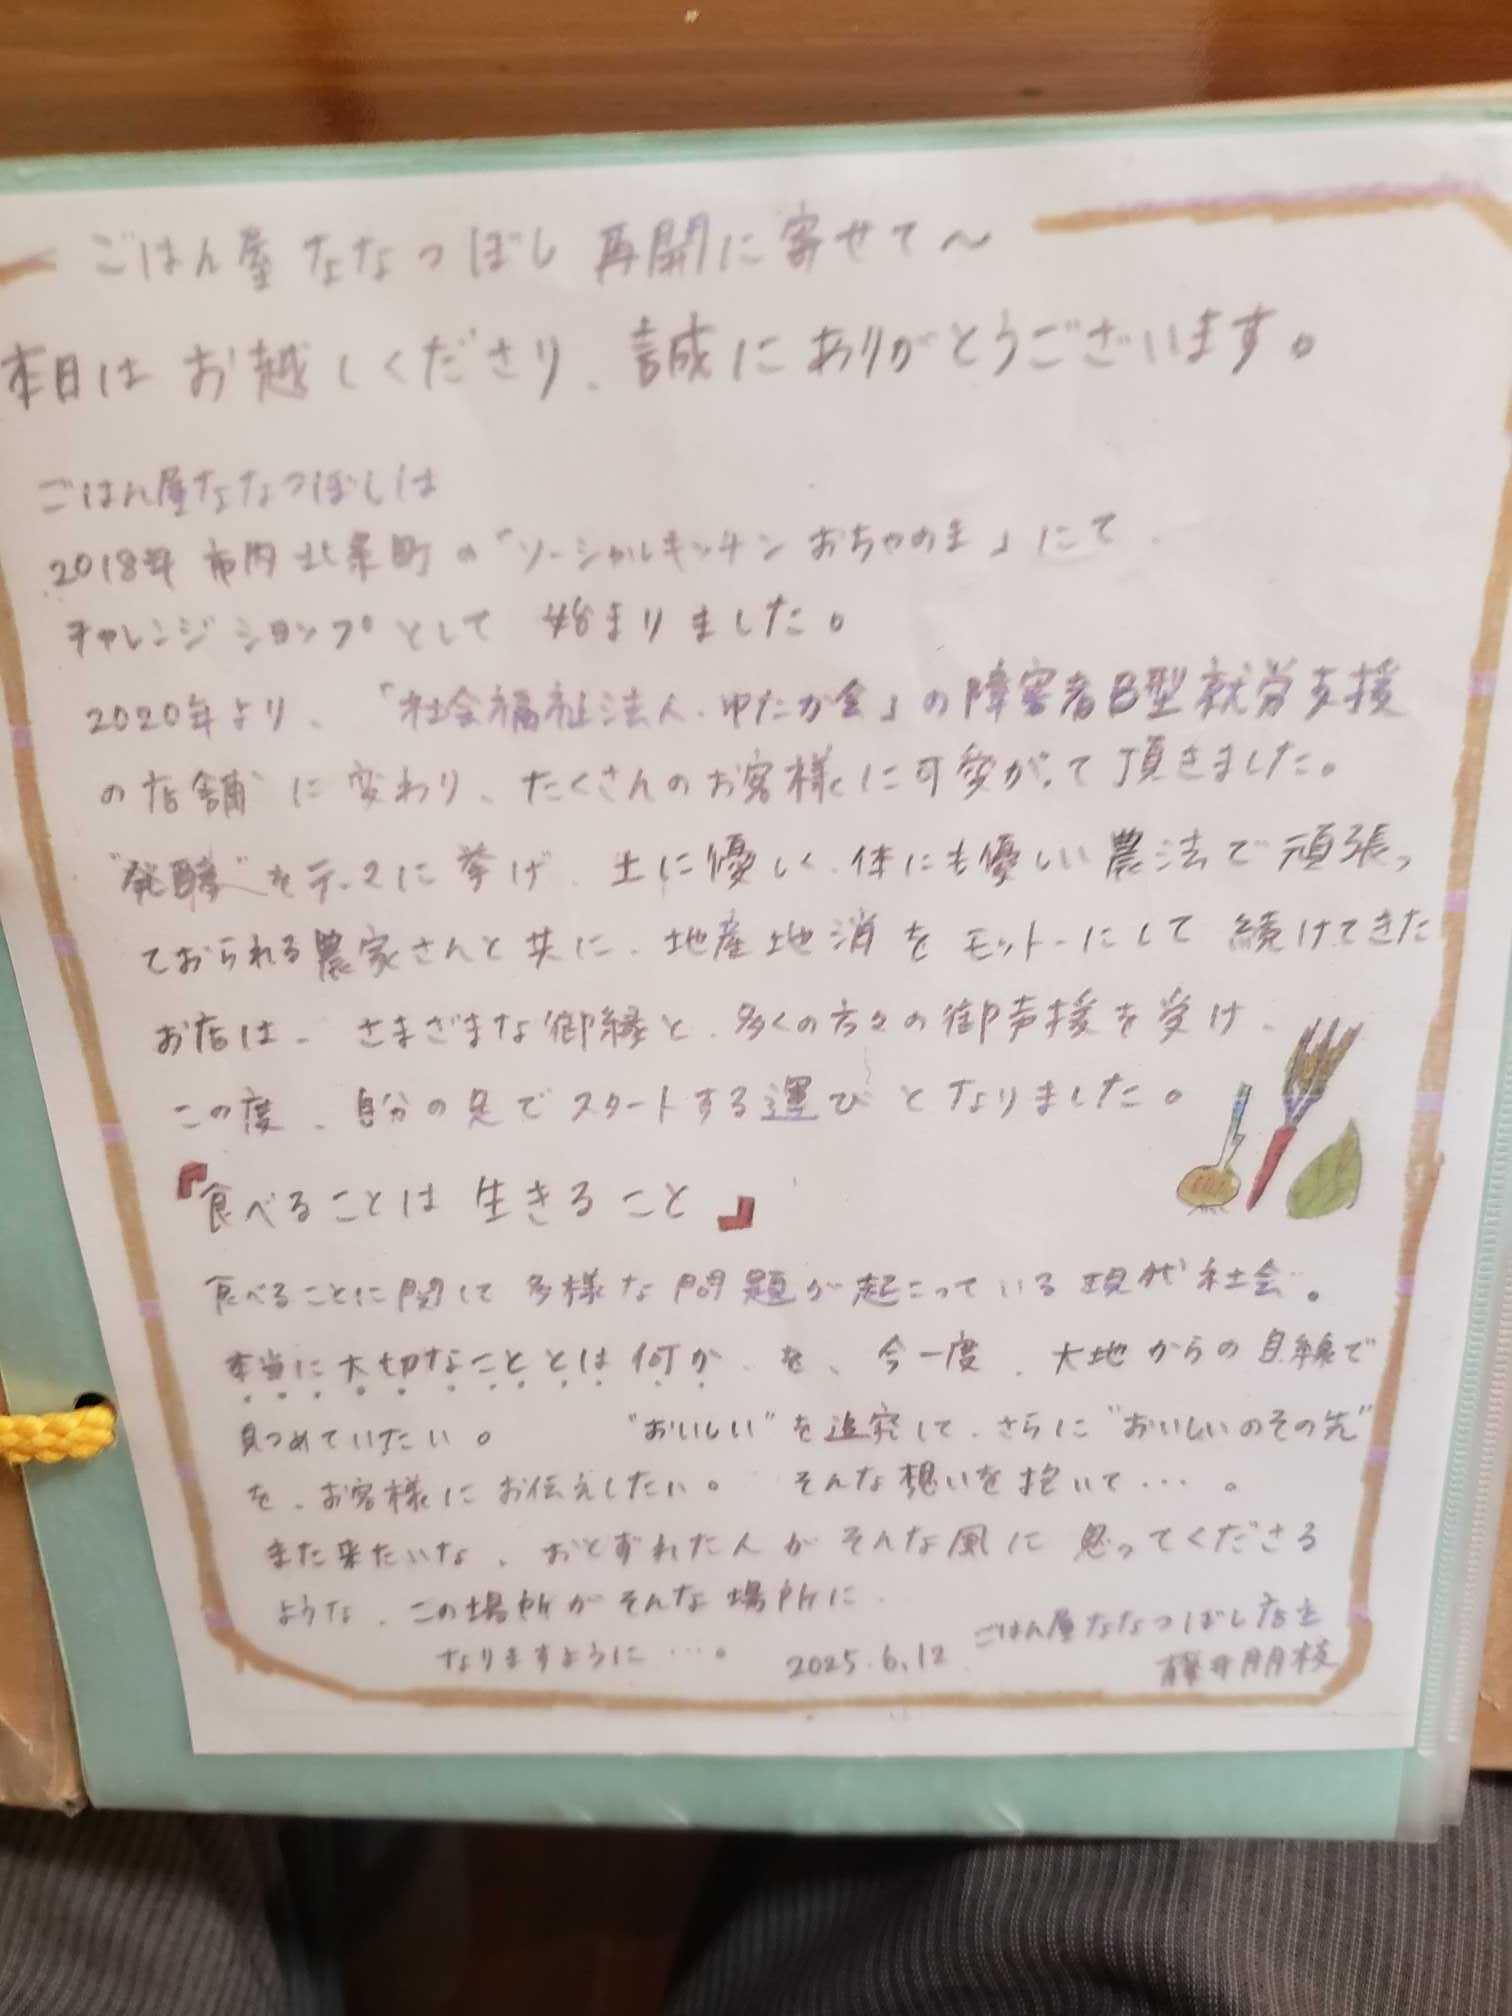 ごはん屋ななつぼし 再開に寄せて〜
本日は お越しくださり、誠にありがとうございます。
ごはん屋ななつぼしは
2018年 市内 北条町の「ソーシャルキッチン おちゃのま」にて、
チャレンジショップとして 始まりました。
2020年より、「社会福祉法人・ゆたか会」の障害者B型就労支援
の店舗に変わり、たくさんのお客様に可愛がって頂きました。
"発酵"をテーマに挙げ、土に優しく、体にも優しい農法で頑張っ
ておられる農家さんと共に、地産地消をモットーにして 続けてきた
お店は、さまざまな御縁と、多くの方々の御声援を受け、
この度、自分の足でスタートする運びとなりました。
『食べることは 生きること』
食べることに関して多様な問題が起こっている現代社会。
本当に大切なこととは何か、を、今一度、大地からの目線で
見つめていたい。 "おいしい"を追究して、さらに"おいしいのその先"
を、お客様にお伝えしたい。 そんな想いを抱いて…。
また来たいな、おとずれた人がそんな風に思ってくださる
ような、この場所がそんな場所に、
なりますように…。 2025.6.12 ごはん屋ななつぼし店主
藤井朋枝